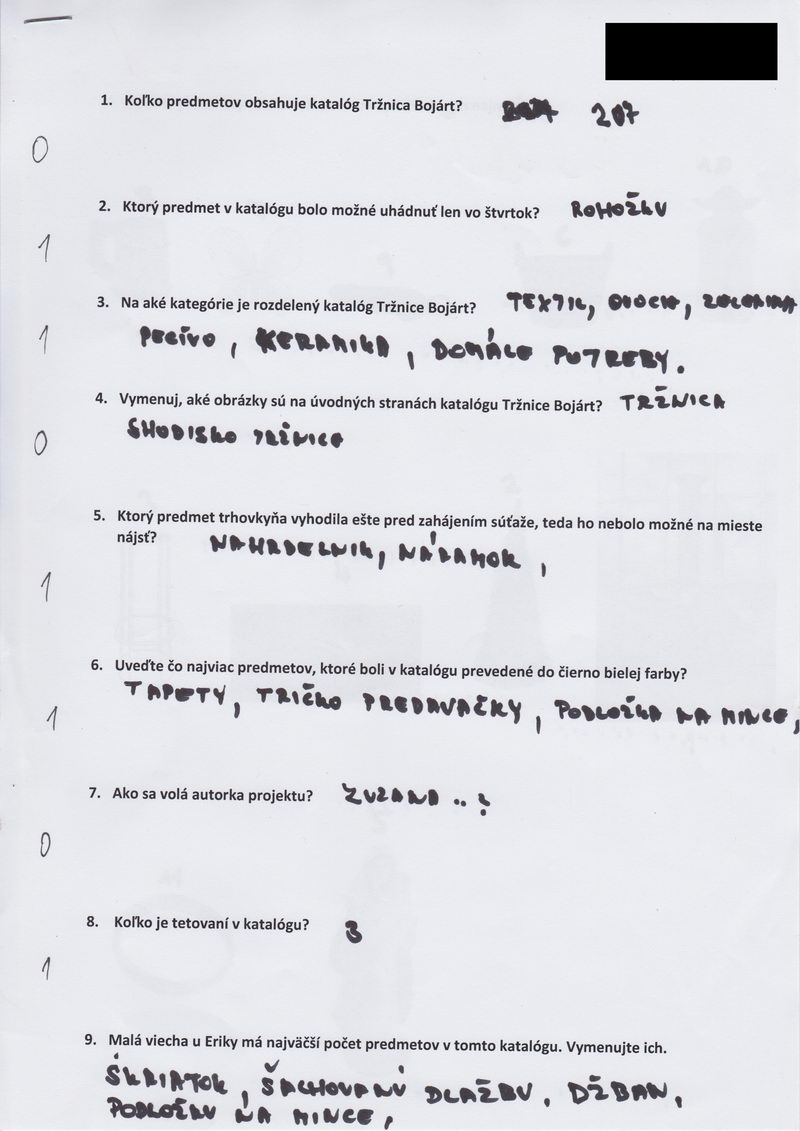 1. Koľko predmetov obsahuje katalóg Tržnica Bojárt? 207
0
2. Ktorý predmet v katalógu bolo možné uhádnuť len vo štvrtok? ROHOŽKU
1
3. Na aké kategórie je rozdelený katalóg Tržnice Bojárt? TEXTIL, OVOCIE, ZELENINA
1 PEČIVO, KERAMIKA, DOMÁCE POTREBY.
4. Vymenuj, aké obrázky sú na úvodných stranách katalógu Tržnice Bojárt? TRŽNICA
0 SHODISKO TRŽNICE
5. Ktorý predmet trhovkyňa vyhodila ešte pred zahájením súťaže, teda ho nebolo možné na mieste
nájsť? NAHRDELNIK, NÁRAMOK,
1
6. Uveďte čo najviac predmetov, ktoré boli v katalógu prevedené do čierno bielej farby?
TAPETY, TRIČKO PREDAVAČKY, PODLOŽKA NA MINCE,
1
7. Ako sa volá autorka projektu? ZUZANA ..?
0
8. Koľko je tetovaní v katalógu? 3
1
9. Malá viecha u Eriky má najväčší počet predmetov v tomto katalógu. Vymenujte ich.
ŠKRIATOK, ŠACHOVANÚ DLAŽBU, DŽBAN,
PODLOŽKU NA MINCE,